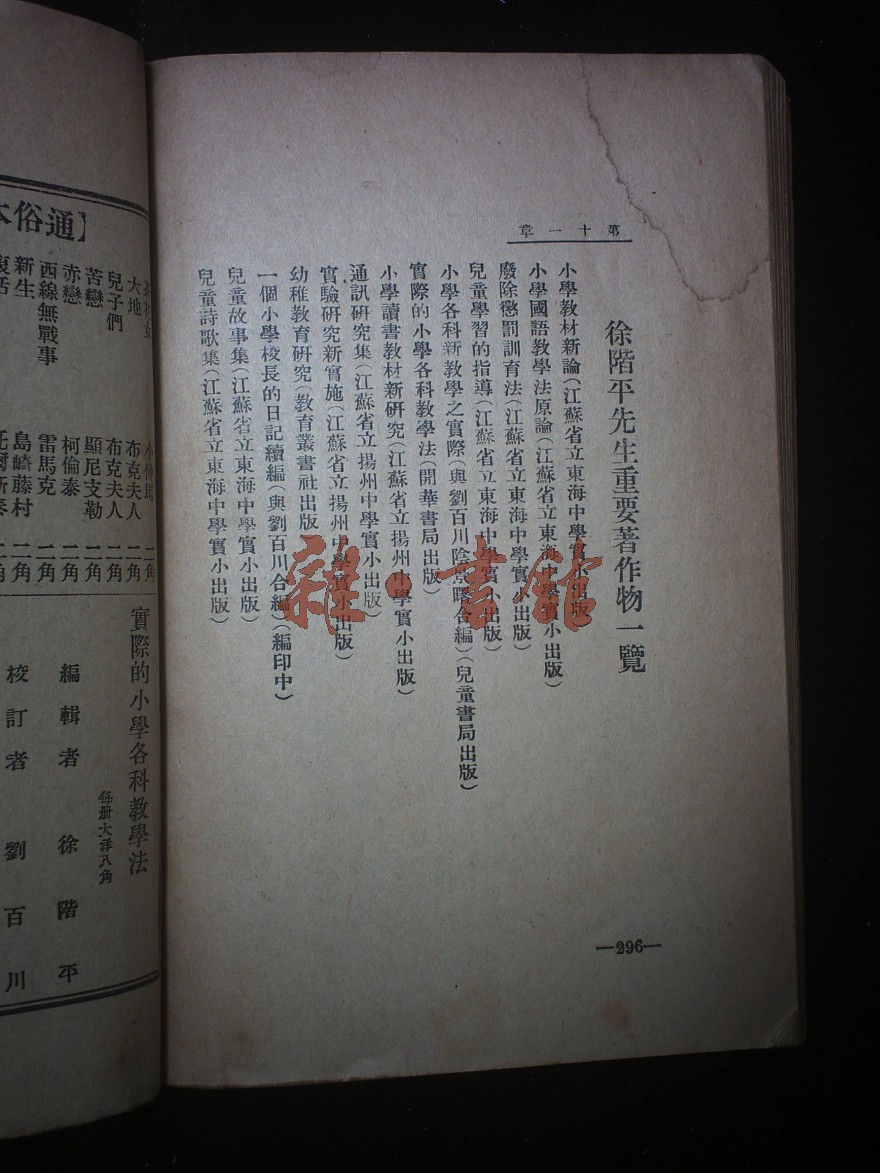 第十一章
徐階平先生重要著作物一覽
小學教材新論(江蘇省立東海中學實小出版)
小學國語教學法原論(江蘇省立東海中學實小出版)
廢除懲罰訓育法(江蘇省立東海中學實小出版)
兒童學習的指導(江蘇省立東海中學實小出版)
小學各科新教學之實際(與劉百川陰景曙合編)(兒童書局出版)
實際的小學各科教學法(開華書局出版)
小學讀書教材新研究(江蘇省立揚州中學實小出版)
通訊研究集(江蘇省立揚州中學實小出版)
實驗研究新實施(江蘇省立揚州中學實小出版)
幼稚教育研究(教育叢書社出版)
一個小學校長的日記續編(與劉百川合編)(編印中)
兒童故事集(江蘇省立東海中學實小出版)
兒童詩歌集(江蘇省立東海中學實小出版)
—296—
雜·書館
【通俗本
大地 布克夫人 二角
兒子們 布克夫人 二角
苦戀 顯尼支勒 二角
赤戀 柯倫泰 二角
西線無戰事 雷馬克 二角
新生 島崎藤村 二角
復活 托爾斯泰 二角
實際的小學各科教學法
每册大洋八角
編輯者 徐階平
校訂者 劉百川